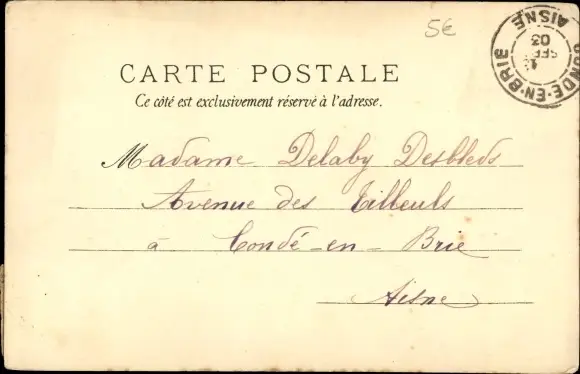 5€
CONDÉ-EN-BRIE
SEPT
03
AISNE
CARTE POSTALE
Ce côté est exclusivement réservé à l'adresse.
Madame Delaby Desbleds
Avenue des Tilleuls
à Condé-en-Brie
Aisne